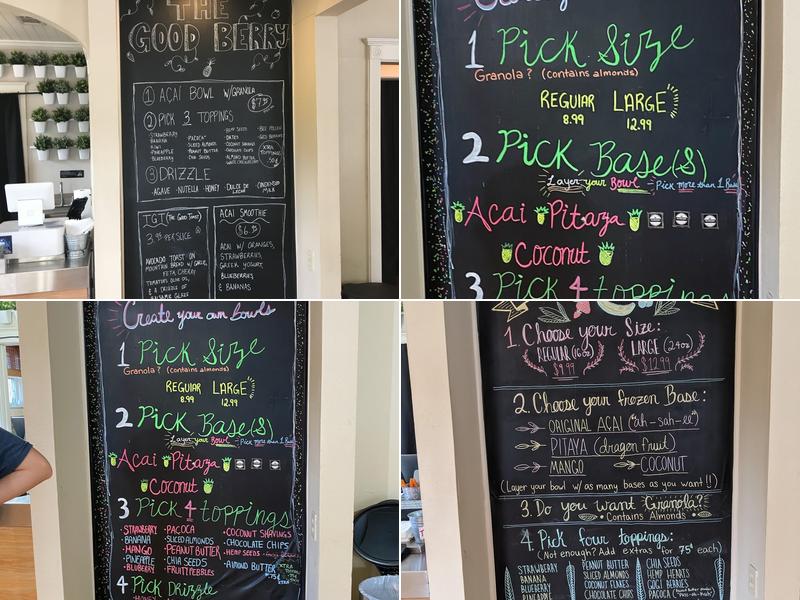 THE
GOOD BERRY
① AÇAI BOWL W/GRANOLA
$7.95
② PICK 3 TOPPINGS
·STRAWBERRY
BANANA
·KIWI
·PINEAPPLE
·BLUEBERRY
·PACOCA
·SLICED ALMONDS
·PEANUT BUTTER
·CHIA SEEDS
·HEMP SEEDS
·DATES
·COCONUT SHAVINGS
·CHOCOLATE CHIPS
·ALMOND BUTTER
·BEE POLLEN
·GOJI BERRIES
XTRA
TOPPINGS
.50¢
③ DRIZZLE
·AGAVE ·NUTELLA ·HONEY ·DULCE DE LECHE ·CONDENSED MILK
TGT (THE GOOD TOAST)
3.95 PER SLICE
AVOCADO TOAST ON
MOUNTAIN BREAD W/ GARLIC,
FETA, CHERRY
TOMATOES, OLIVE OIL,
& A DRIZZLE OF
BALSAMIC GLAZE
AÇAI SMOOTHIE
$6.95
ACAI W/ ORANGES,
STRAWBERRIES,
GREEK YOGURT,
BLUEBERRIES
& BANANAS
1 Pick Size
Granola? (contains almonds)
REGULAR LARGE
8.99 12.99
2 Pick Base(s)
Layer your Bowl - Pick more than 1 Base
Acai Pitaya
Coconut
3 Pick 4 toppings
Create your own Bowls
1 Pick Size
Granola? (contains almonds)
REGULAR LARGE
8.99 12.99
2 Pick Base(s)
Layer your Bowl - Pick more than 1 Base
Acai Pitaya
Coconut
3 Pick 4 toppings
·STRAWBERRY
·BANANA
·MANGO
·PINEAPPLE
·BLUBERRY
·PACOCA
·SLICED ALMONDS
·PEANUT BUTTER
·CHIA SEEDS
·FRUITY PEBBLES
·COCONUT SHAVINGS
·CHOCOLATE CHIPS
·HEMP SEEDS
·ALMOND BUTTER
XTRA
TOPPINGS
75¢
4 Pick Drizzle
1. Choose your Size:
REGULAR (16oz) LARGE (24oz)
$9.99 $12.99
2. Choose your frozen Base:
ORIGINAL ACAI ("ah-sah-ee")
PITAYA (dragon fruit)
MANGO COCONUT
(Layer your bowl w/ as many bases as you want!!)
3. Do you want Granola?
• Contains Almonds •
4. Pick four toppings:
(Not enough? Add extras for 75¢ each)
STRAWBERRY
BANANA
BLUEBERRY
PINEAPPLE
PEANUT BUTTER
SLICED ALMONDS
COCONUT FLAKES
CHOCOLATE CHIPS
CHIA SEEDS
HEMP HEARTS
GOGI BERRIES
PACOCA